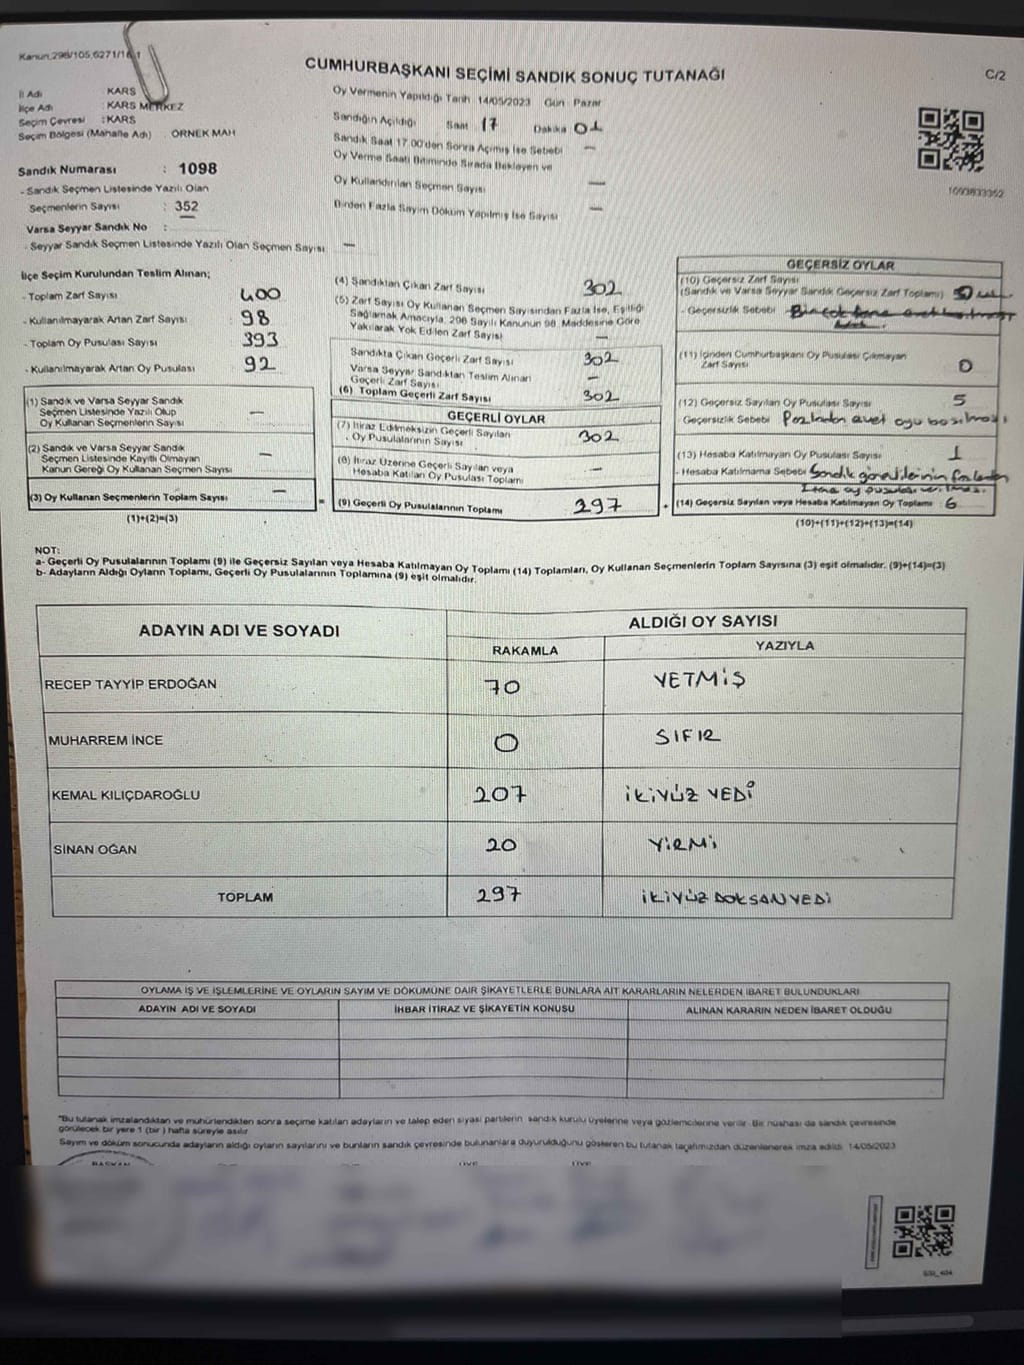 Kanun,298/105,6271/16,1
CUMHURBAŞKANI SEÇİMİ SANDIK SONUÇ TUTANAĞI
C/2
İl Adı KARS
İlçe Adı : KARS MERKEZ
Seçim Çevresi : KARS
Seçim Bölgesi (Mahalle Adı) ÖRNEK MAH
Sandık Numarası : 1098
- Sandık Seçmen Listesinde Yazılı Olan
Seçmenlerin Sayısı : 352
Varsa Seyyar Sandık No :
- Seyyar Sandık Seçmen Listesinde Yazılı Olan Seçmen Sayısı —
Oy Vermenin Yapıldığı Tarih 14/05/2023 Gün Pazar
Sandığın Açıldığı Saat 17 Dakika 01
Sandık Saat 17.00'den Sonra Açımış İse Sebebi —
Oy Verme Saati Bitiminde Sırada Bekleyen ve
Oy Kullandırılan Seçmen Sayısı —
Birden Fazla Sayım Döküm Yapılmış İse Sayısı —
1093833352
İlçe Seçim Kurulundan Teslim Alınan;
- Toplam Zarf Sayısı 400
- Kullanılmayarak Artan Zarf Sayısı : 98
- Toplam Oy Pusulası Sayısı : 393
- Kullanılmayarak Artan Oy Pusulası 92
(1) Sandık ve Varsa Seyyar Sandık
Seçmen Listesinde Yazılı Olup
Oy Kullanan Seçmenlerin Sayısı —
(2) Sandık ve Varsa Seyyar Sandık
Seçmen Listesinde Kayıtlı Olmayan
Kanun Gereği Oy Kullanan Seçmen Sayısı —
(3) Oy Kullanan Seçmenlerin Toplam Sayısı —
(1)+(2)=(3)
(4) Sandıktan Çıkan Zarf Sayısı 302
(5) Zarf Sayısı Oy Kullanan Seçmen Sayısından Fazla İse, Eşitliği
Sağlamak Amacıyla, 298 Sayılı Kanunun 98. Maddesine Göre
Yakılarak Yok Edilen Zarf Sayısı —
Sandıkta Çıkan Geçerli Zarf Sayısı 302
Varsa Seyyar Sandıktan Teslim Alınan
Geçerli Zarf Sayısı —
(6) Toplam Geçerli Zarf Sayısı 302
GEÇERLİ OYLAR
(7) İtiraz Edilmeksizin Geçerli Sayılan
Oy Pusulalarının Sayısı 302
(8) İtiraz Üzerine Geçerli Sayılan veya
Hesaba Katılan Oy Pusulası Toplamı —
(9) Geçerli Oy Pusulalarının Toplamı 297
GEÇERSİZ OYLAR
(10) Geçersiz Zarf Sayısı
(Sandık ve Varsa Seyyar Sandık Geçersiz Zarf Toplamı)
- Geçersizlik Sebebi
(11) İçinden Cumhurbaşkanı Oy Pusulası Çıkmayan
Zarf Sayısı 0
(12) Geçersiz Sayılan Oy Pusulası Sayısı 5
Geçersizlik Sebebi Pazladan evet oyu basılması
(13) Hesaba Katılmayan Oy Pusulası Sayısı 1
- Hesaba Katılmama Sebebi Sandık görevlilerinin fazladan
(14) Geçersiz Sayılan veya Hesaba Katılmayan Oy Toplamı 6
(10)+(11)+(12)+(13)=(14)
NOT:
a- Geçerli Oy Pusulalarının Toplamı (9) ile Geçersiz Sayılan veya Hesaba Katılmayan Oy Toplamı (14) Toplamları, Oy Kullanan Seçmenlerin Toplam Sayısına (3) eşit olmalıdır. (9)+(14)=(3)
b- Adayların Aldığı Oyların Toplamı, Geçerli Oy Pusulalarının Toplamına (9) eşit olmalıdır.
ADAYIN ADI VE SOYADI ALDIĞI OY SAYISI
RAKAMLA YAZIYLA
RECEP TAYYİP ERDOĞAN 70 YETMİŞ
MUHARREM İNCE 0 SIFIR
KEMAL KILIÇDAROĞLU 207 İKİYÜZ YEDİ
SİNAN OĞAN 20 YİRMİ
TOPLAM 297 İKİYÜZ DOKSAN YEDİ
OYLAMA İŞ VE İŞLEMLERİNE VE OYLARIN SAYIM VE DÖKÜMÜNE DAİR ŞİKAYETLERLE BUNLARA AİT KARARLARIN NELERDEN İBARET BULUNDUKLARI
ADAYIN ADI VE SOYADI İHBAR İTİRAZ VE ŞİKAYETİN KONUSU ALINAN KARARIN NEDEN İBARET OLDUĞU
"Bu tutanak imzalandıktan ve mühürlendikten sonra seçime katılan adayların ve talep eden siyasi partilerin sandık kurulu üyelerine veya gözlemcilerine verilir. Bir nüshası da sandık çevresinde
görülecek bir yere 1 (bir) hafta süreyle asılır.
Sayım ve döküm sonucunda adayların aldığı oyların sayılarını ve bunların sandık çevresinde bulunanlara duyurulduğunu gösteren bu tutanak tarafımızdan düzenlenerek imza edildi. 14/05/2023
BAŞKAN ÜYE ÜYE